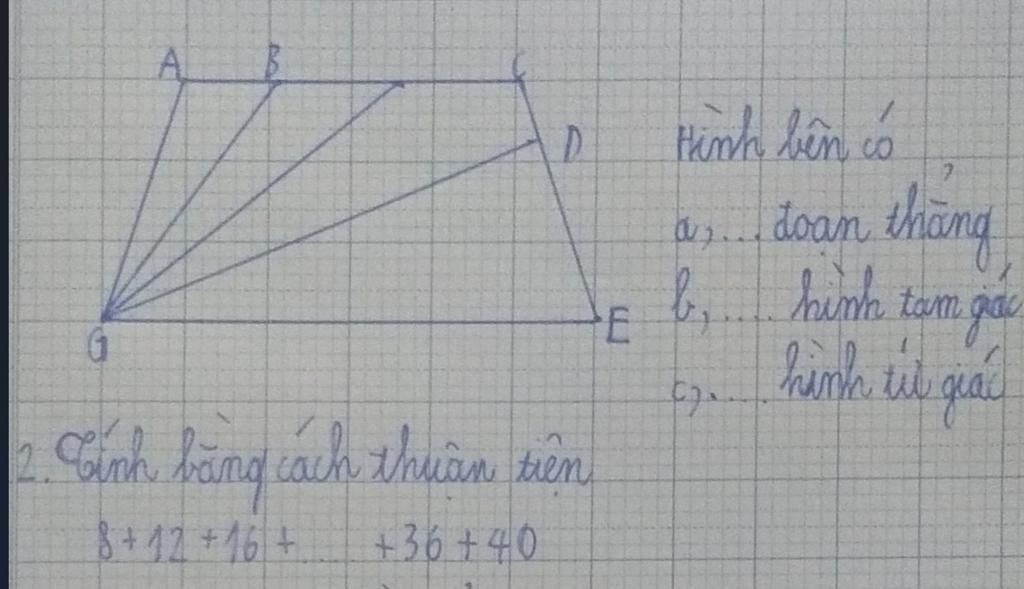 A B C
D
Hình bên có
a, ... đoạn thẳng
b, .... hình tam giác
c, .... hình tứ giác
G E
2. Tính bằng cách thuận tiện
8 + 12 + 16 + .... + 36 + 40